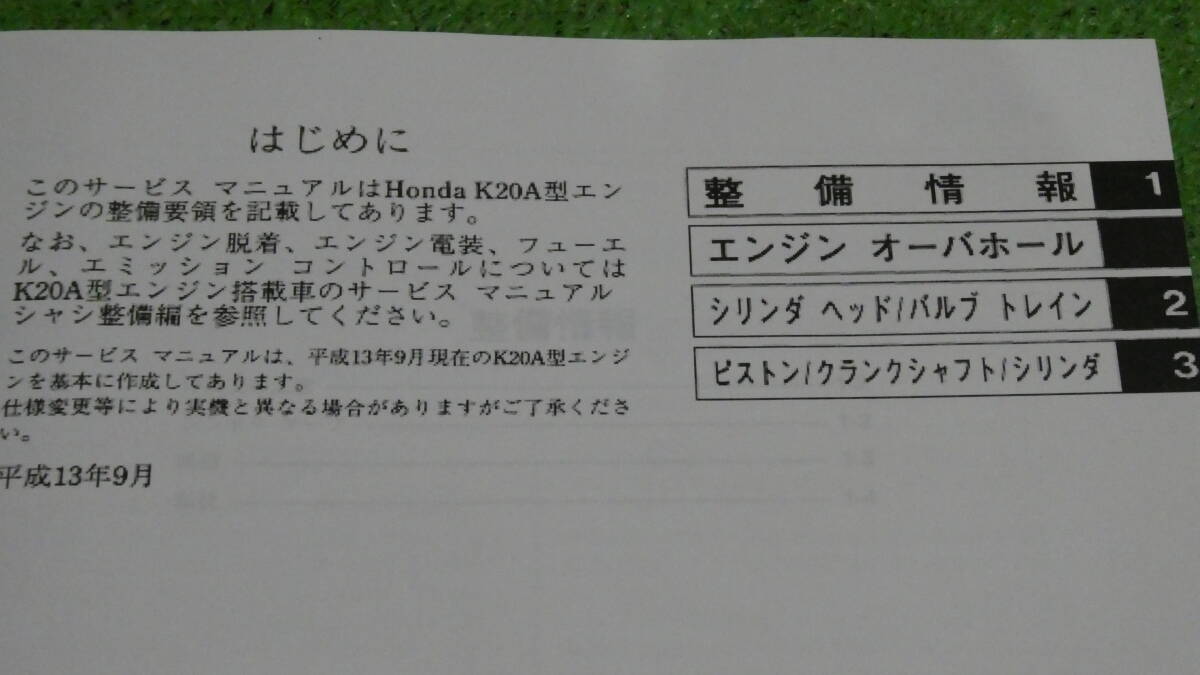 はじめに
このサービス マニュアルはHonda K20A型エン
ジンの整備要領を記載してあります。
なお、エンジン脱着、エンジン電装、フューエ
ル、エミッション コントロールについては
K20A型エンジン搭載車のサービス マニュアル
シャシ整備編を参照してください。
このサービス マニュアルは、平成13年9月現在のK20A型エンジ
ンを基本に作成してあります。
仕様変更等により実機と異なる場合がありますがご了承くださ
い。
平成13年9月
整備情報 1
エンジン オーバホール
シリンダ ヘッド/バルブ トレイン 2
ピストン/クランクシャフト/シリンダ 3
整備情報